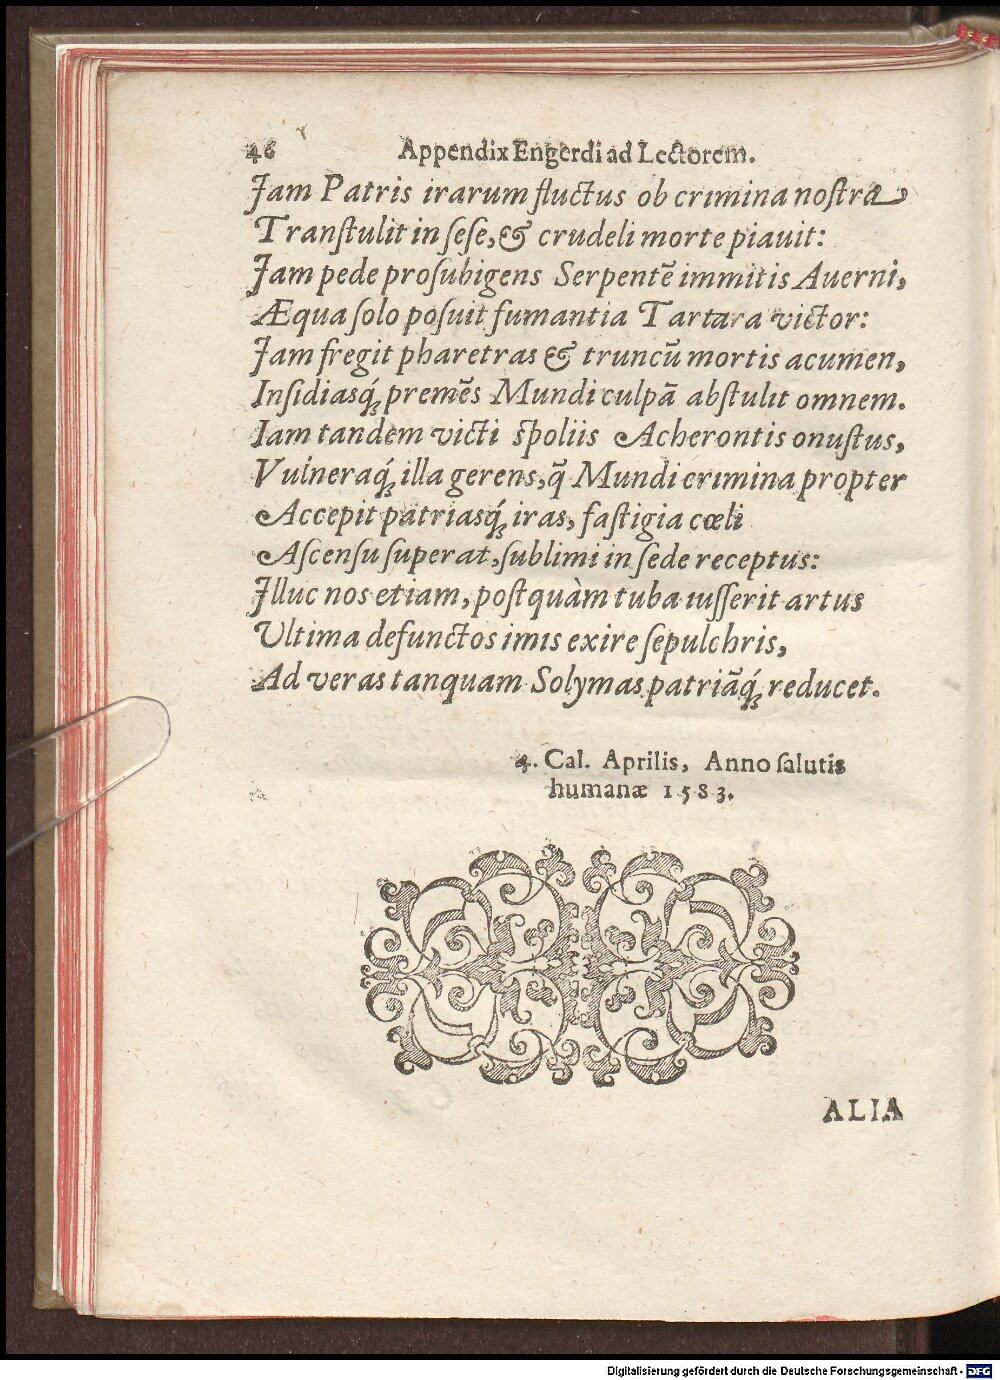 46 Appendix Engerdi ad Lectorem.
Jam Patris irarum fluctus ob crimina noſtra
Tranſtulit in ſeſe, & crudeli morte piauit:
Jam pede proſubigens Serpentē immitis Auerni,
Æqua ſolo poſuit fumantia Tartara victor:
Jam fregit pharetras & truncū mortis acumen,
Inſidiasq́ꝫ premēs Mundi culpā abſtulit omnem.
Iam tandem victi ſpoliis Acherontis onuſtus,
Vulneraq́ꝫ illa gerens, q̃ Mundi crimina propter
Accepit patriasq́ꝫ iras, faſtigia cœli
Aſcenſu ſuperat, ſublimi in ſede receptus:
Illuc nos etiam, poſtquàm tuba iuſſerit artus
Vltima defunctos imis exire ſepulchris,
Ad veras tanquam Solymas patriāq́ꝫ reducet.
4. Cal. Aprilis, Anno ſalutis
humanæ 1583.
ALIA
Digitalisierung gefördert durch die Deutsche Forschungsgemeinschaft - DFG